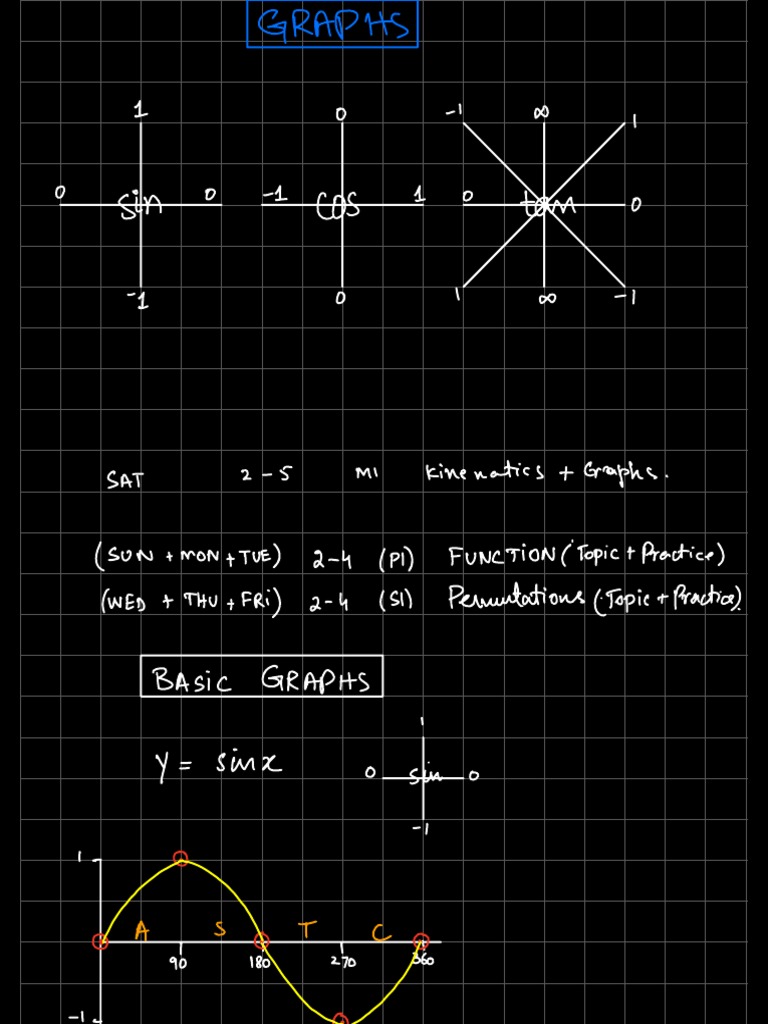 GRAPHS
1 0 -1 ∞ 1
0 sin 0 -1 cos 1 0 tan 0
-1 0 1 ∞ -1
SAT 2-5 M1 Kinematics + Graphs.
(SUN + MON + TUE) 2-4 (P1) FUNCTION (Topic + Practice)
(WED + THU + FRi) 2-4 (S1) Permutations (Topic + Practice)
BASiC GRAPHS
1
y = sinx 0 sin 0
-1
1
A S T C
90 180 270 360
-1